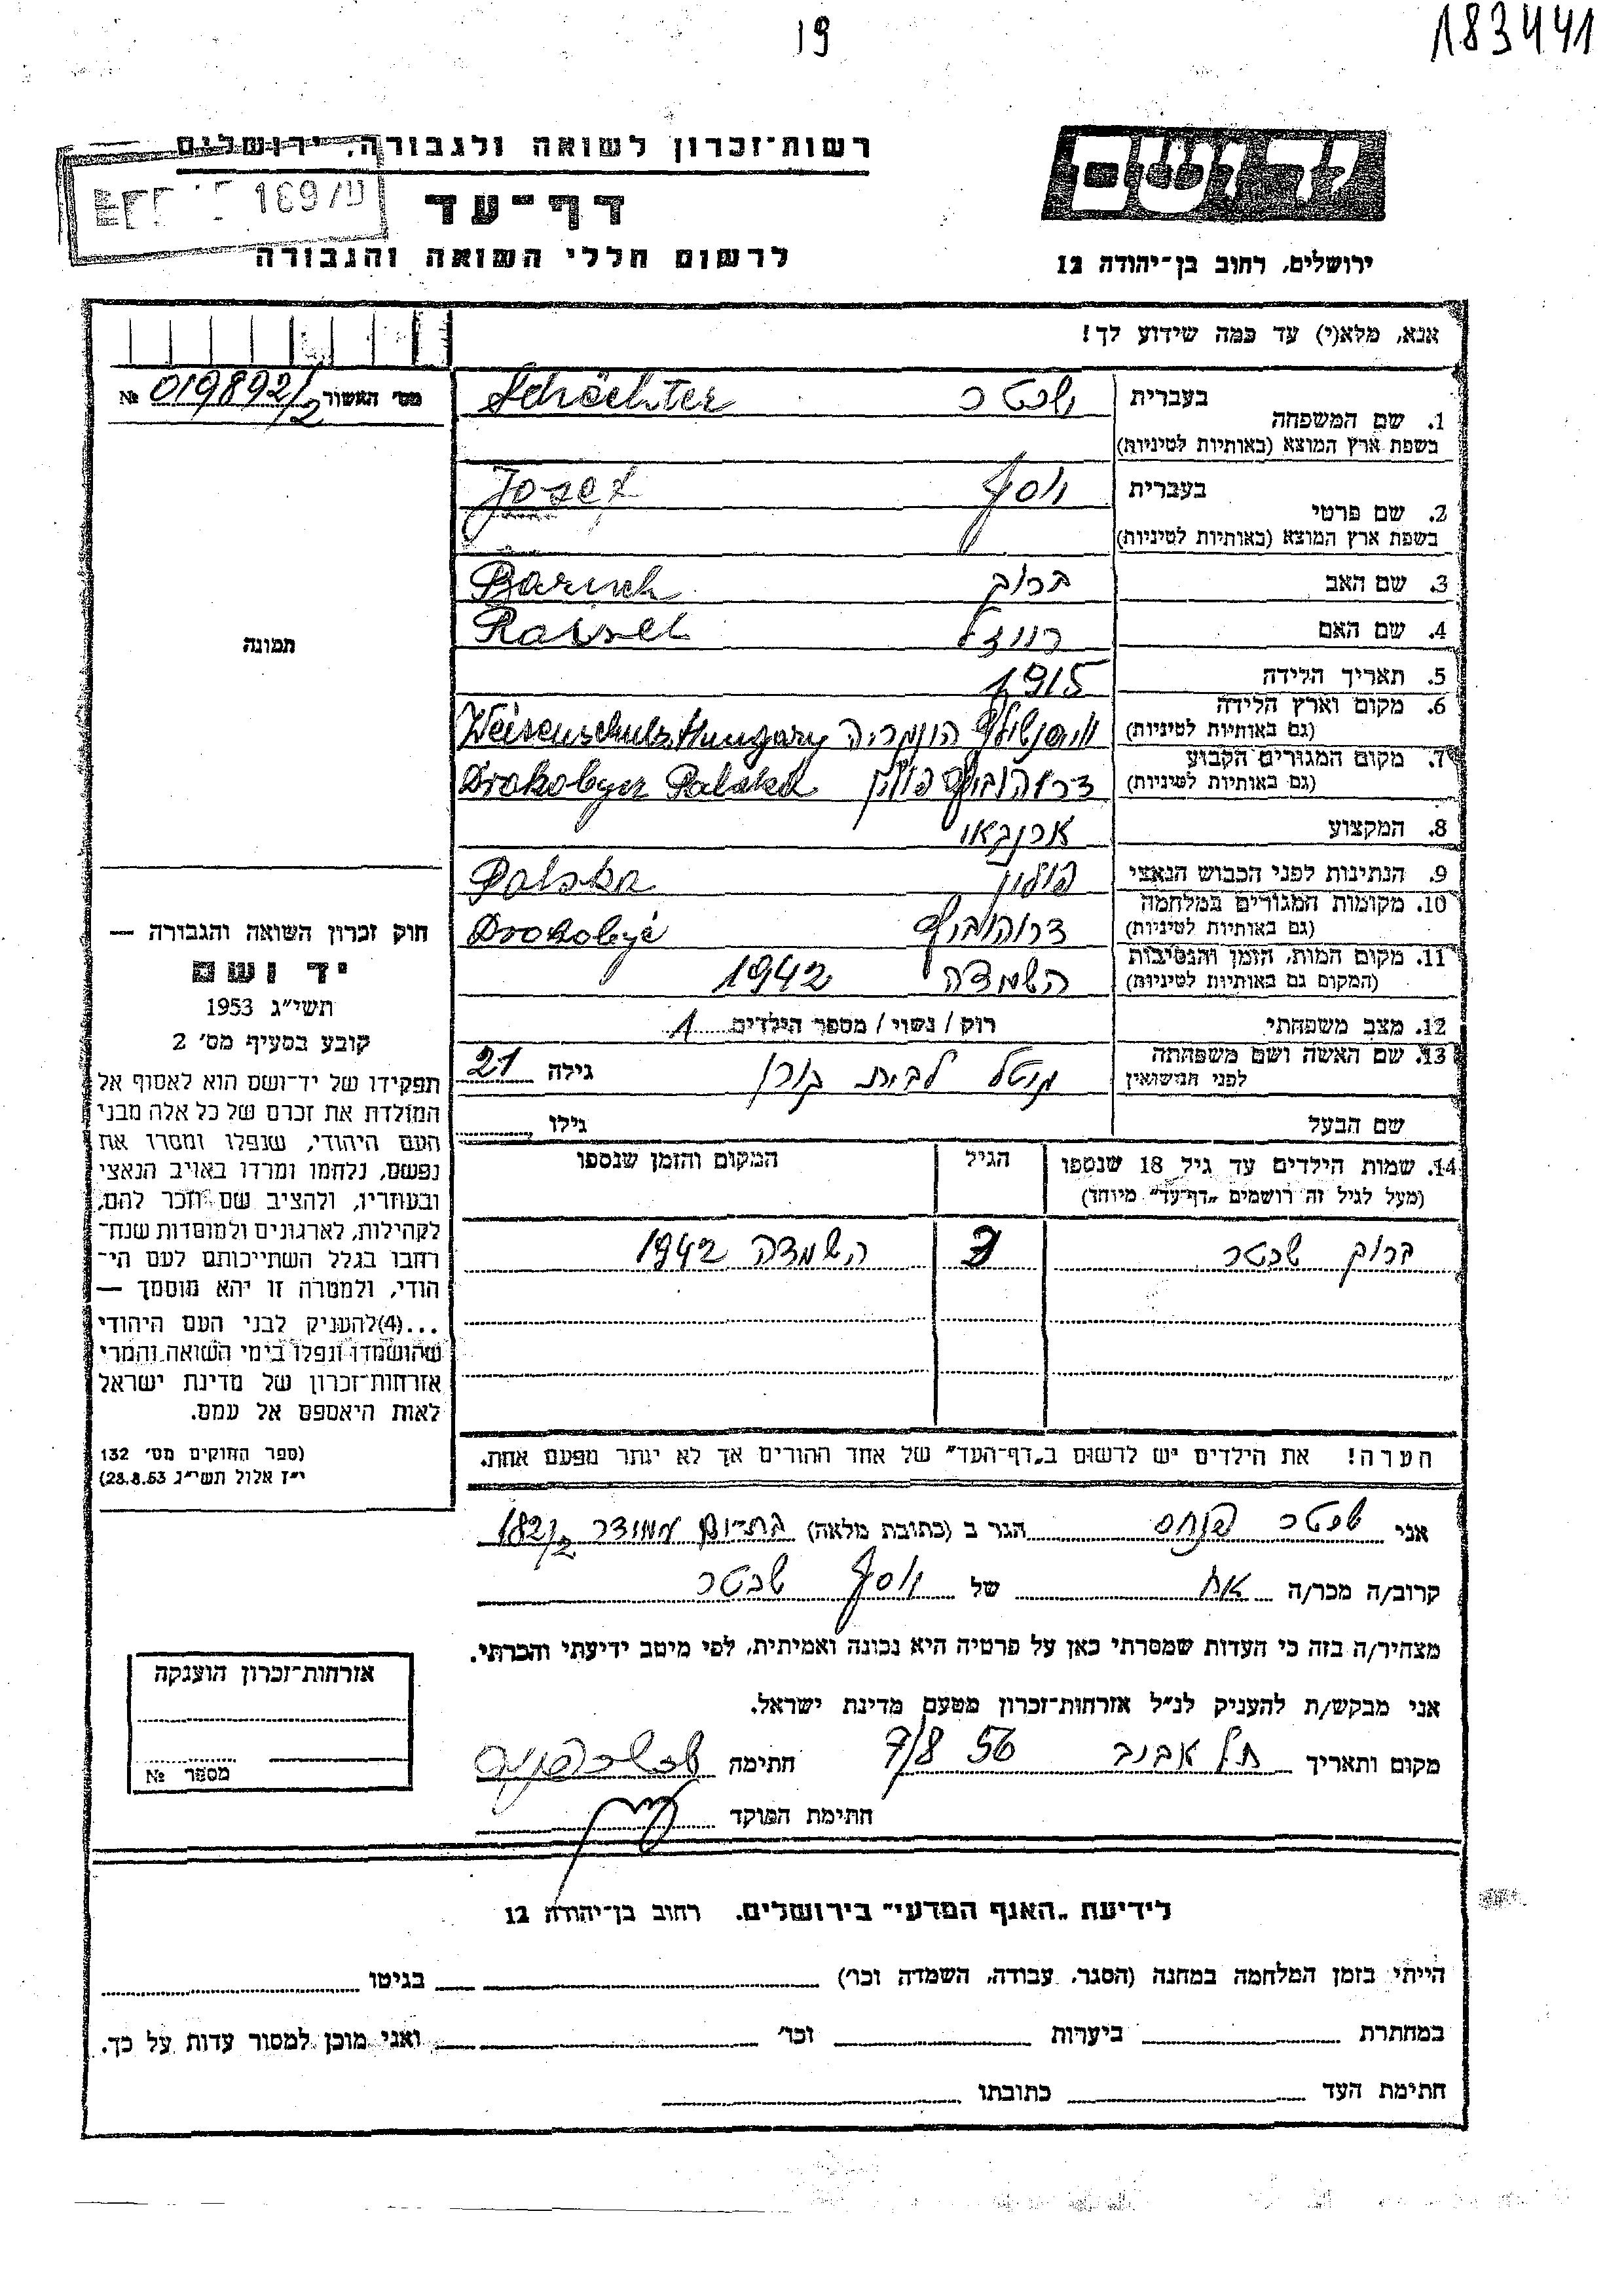 19
183441
יד ושם
ירושלים, רחוב בן־יהודה 12
רשות־זכרון לשואה ולגבורה, ירושלים
דף־עד
לרשום חללי השואה והגבורה
169/ש
אנא, מלא(י) עד כמה שידוע לך!
מס׳ האשור № 019892/2
תמונה
1. שם המשפחה
בעברית שכטר
בשפת ארץ המוצא (באותיות לטיניות) Schächter
2. שם פרטי
בעברית יוסף
בשפת ארץ המוצא (באותיות לטיניות) Josef
3. שם האב ברוך Baruch
4. שם האם רייזל Raisel
5. תאריך הלידה 1915
6. מקום וארץ הלידה
(גם באותיות לטיניות) הונגריה Hungary
7. מקום המגורים הקבוע
(גם באותיות לטיניות) דרוהוביץ פולין Drohobycz Polska
8. המקצוע
9. הנתינות לפני הכבוש הנאצי פולין Polska
10. מקומות המגורים במלחמה
(גם באותיות לטיניות) דרוהוביץ Drohobyć
11. מקום המות, הזמן והנסיבות
(המקום גם באותיות לטיניות) השמדה 1942
12. מצב משפחתי רוק / נשוי / מספר הילדים 1
13. שם האשה ושם משפחתה
לפני הנישואין לבית גילה 21
שם הבעל גילו
14. שמות הילדים עד גיל 18 שנספו
(מעל לגיל זה רושמים „דף־עד״ מיוחד)
הגיל
המקום והזמן שנספו
ברוך שכטר השמדה 1942
הערה! את הילדים יש לרשום ב„דף־העד״ של אחד ההורים אך לא יותר מפעם אחת.
חוק זכרון השואה והגבורה —
יד ושם
תשי״ג 1953
קובע בסעיף מס׳ 2
תפקידו של יד־ושם הוא לאסוף אל
המולדת את זכרם של כל אלה מבני
העם היהודי, שנפלו ומסרו את
נפשם, נלחמו ומרדו באויב הנאצי
ובעוזריו, ולהציב שם וזכר להם,
לקהילות, לארגונים ולמוסדות שנח־
רחבו בגלל השתייכותם לעם הי־
הודי, ולמטרה זו יהא מוסמך —
...(4)להעניק לבני העם היהודי
שהושמדו ונפלו בימי השואה והמרי
אזרחות־זכרון של מדינת ישראל
לאות היאספם אל עמם.
(ספר החוקים מס׳ 132
י״ז אלול תשי״ג 28.8.53)
אני שכטר פנחס הגר ב (כתובת מלאה) בת־ים 182/2
קרוב/ה מכר/ה אח של יוסף שכטר
מצהיר/ה בזה כי העדות שמסרתי כאן על פרטיה היא נכונה ואמיתית, לפי מיטב ידיעתי והכרתי.
אני מבקש/ת להעניק לנ״ל אזרחות־זכרון מטעם מדינת ישראל.
מקום ותאריך תל אביב 7/8 56 חתימה
חתימת הפוקד
אזרחות־זכרון הוענקה
מספר №
לידיעת „האגף המדעי״ בירושלים. רחוב בן־יהודה 12
הייתי בזמן המלחמה במחנה (הסגר, עבודה, השמדה וכו׳) בגיטו
במחתרת ביערות וכו׳ ואני מוכן למסור עדות על כך.
חתימת העד כתובתו